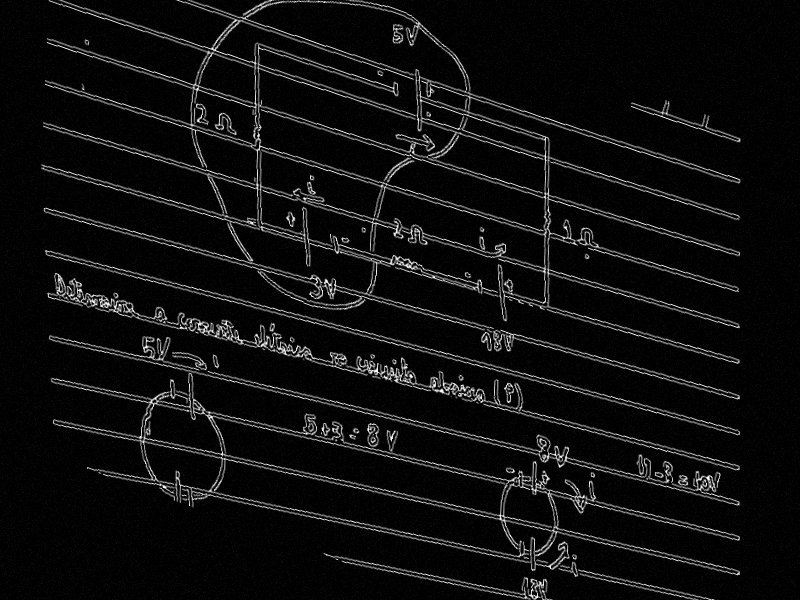 5V
2 Ω
i
i
1 Ω
3V
18V
Determine a corrente elétrica no circuito abaixo (↑)
5V → i
5+3 = 8 V
8V
i
i
18V